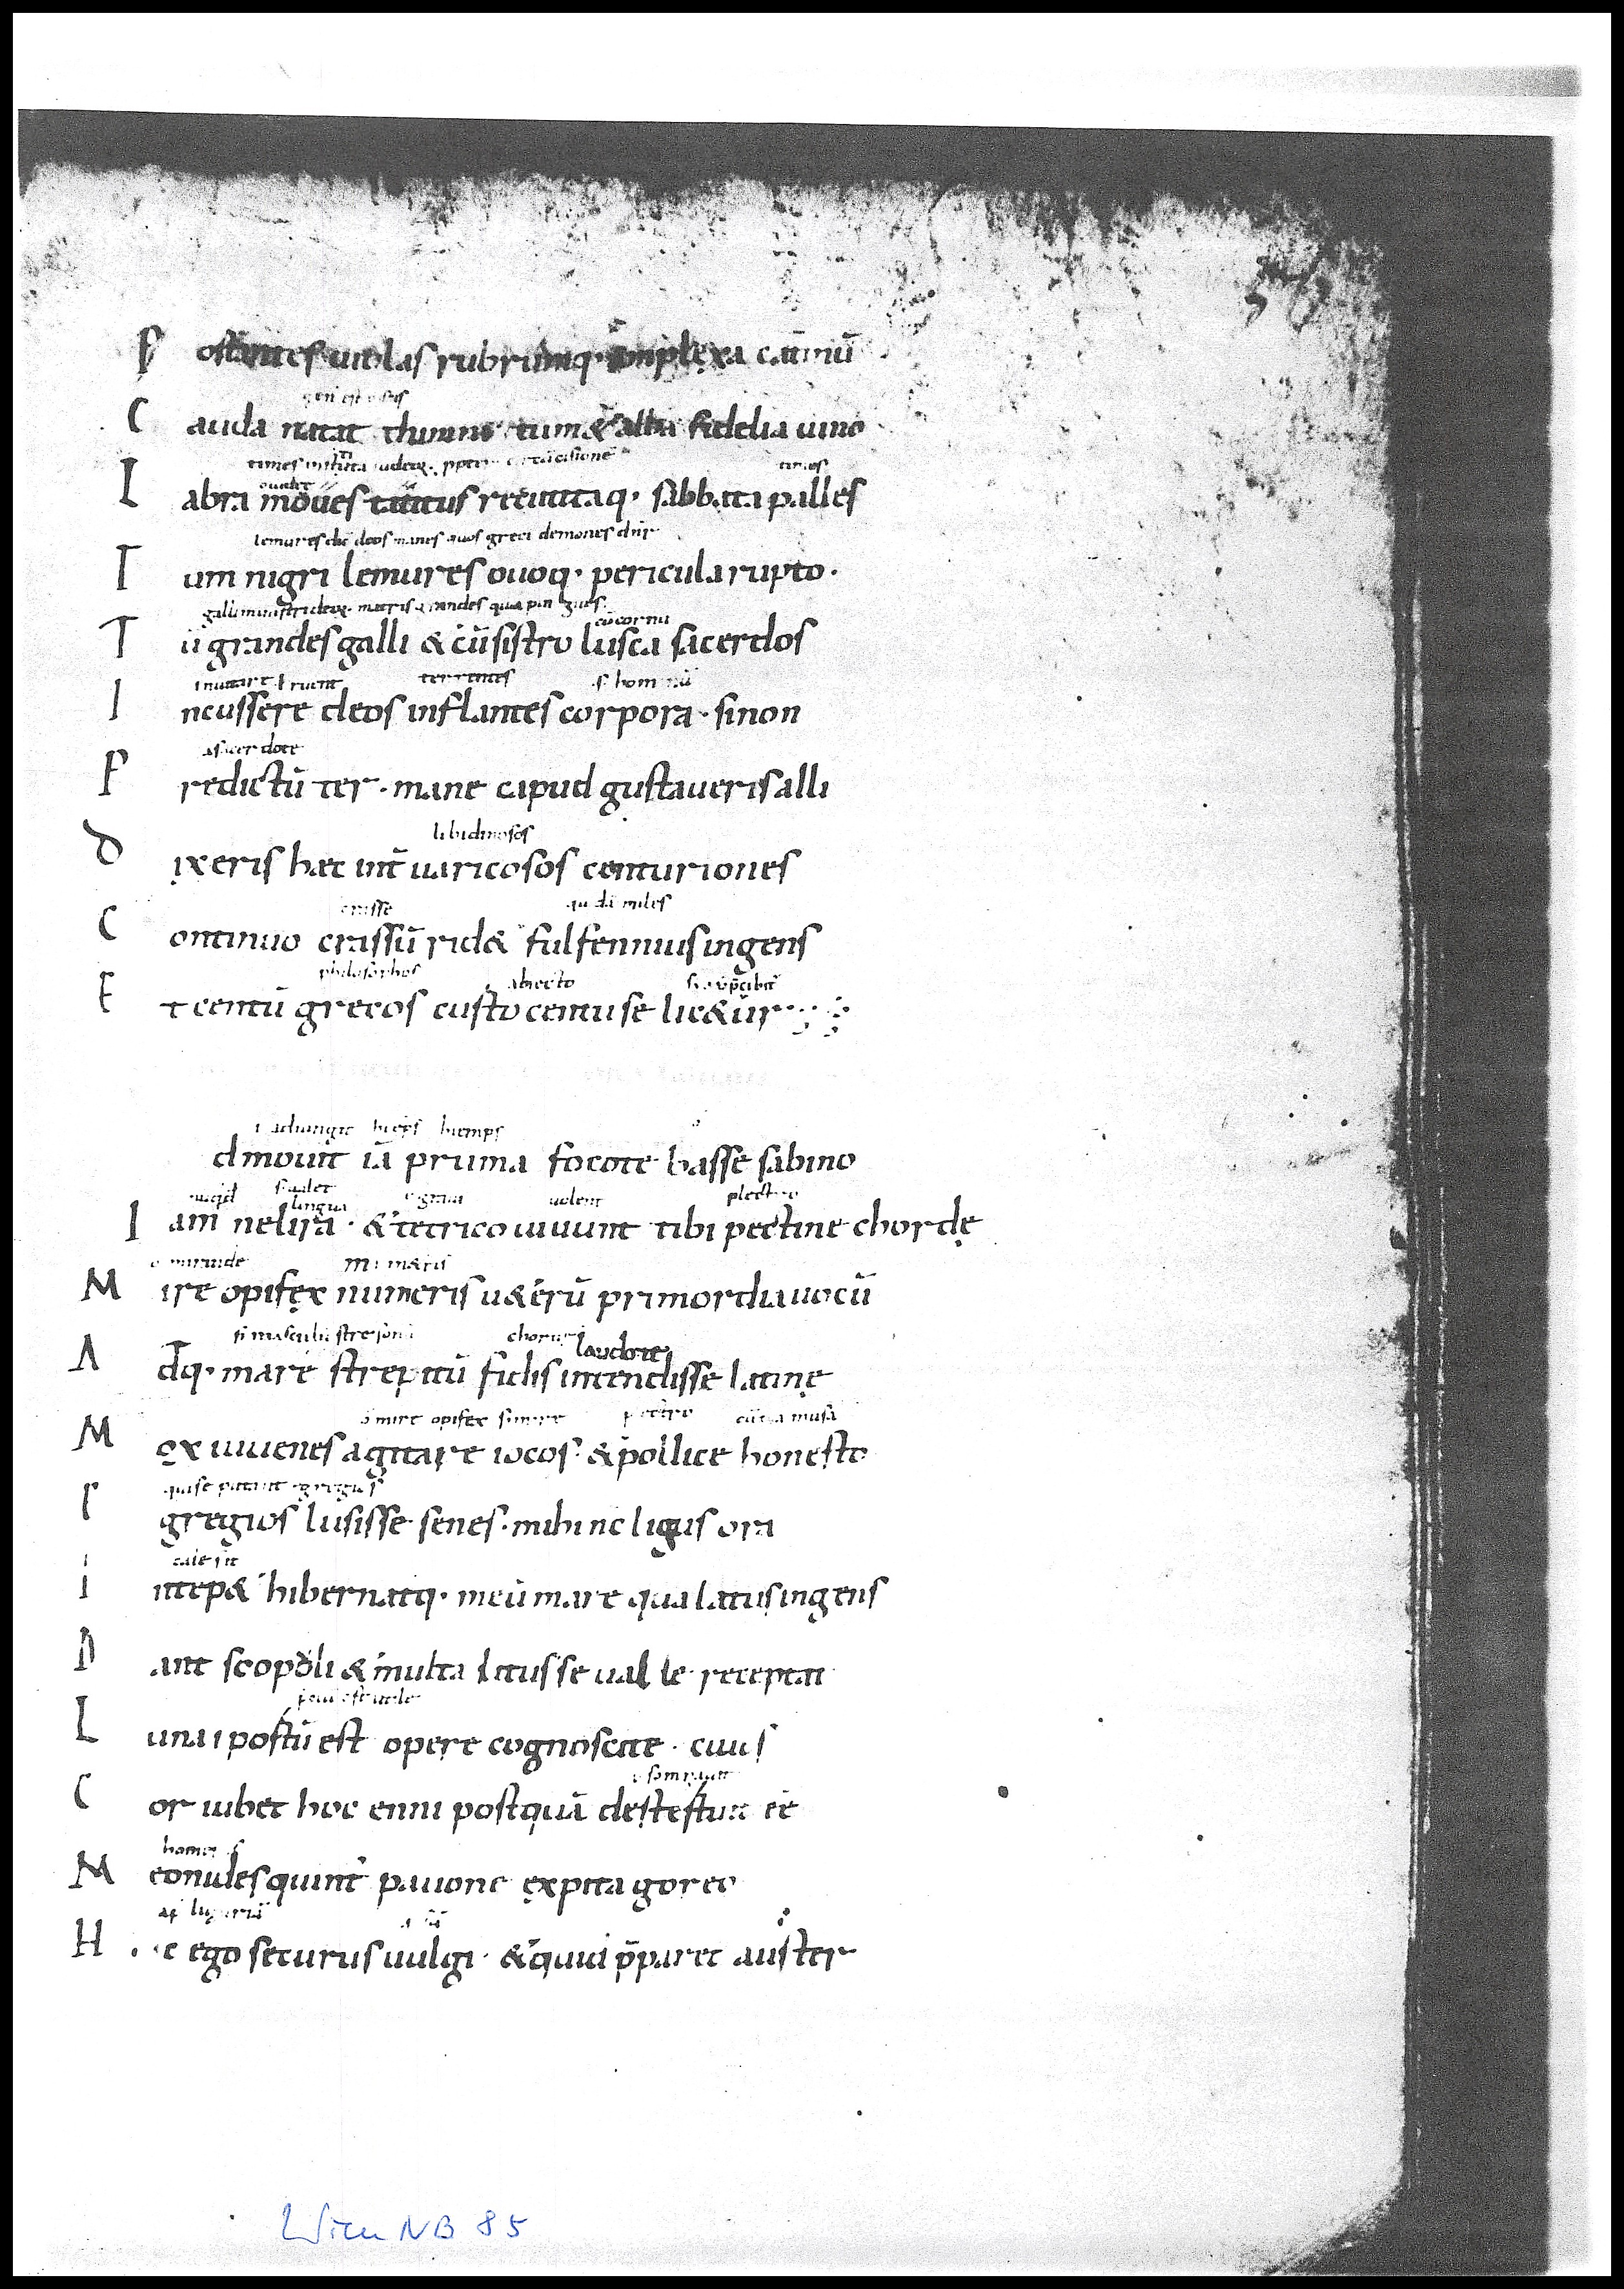 P ortantes uiolas rubrumq· amplexa catinū
C auda natat thunni tum & alba fidelia uino
times instituta iudeoꝝ· ppter circūcisionē times
L abra moues tacitus recutitaq· sabbata palles
lemures dic deos manes quos greci demones
T um nigri lemures ouoq· pericula rupto·
galli ministri deoꝝ· matris grandes quia pingues
T ū grandes galli & cū sistro lusca sacerdos
terrentes s hominū
I ncussere deos inflantes corpora· sinon
a sacerdote
P redictū ter· mane capud gustaueris alli
libidinosos
D ixeris haec int̄ uaricosos centuriones
crasse quidā miles
C ontinuo crassū rid& fulfennius ingens
philosophos abiecto
E t centū grecos custo centuse lic&ur
adiungit hiemps
dmouit iā pruma focote basse sabino
lingua uolent plectro
I am nelira· & tetrico uiuunt tibi pectine chordę
o mirande
M ire opifex numeris u&erū primordia uocū
laudare
A dq· mare strepitū fidis intendisse latinę
o mire opifex musa
M ox iuuenes agitare iocos· & pollice honesto
E gregios lusisse senes· mihi nc ligus ora
I ntep& hibernatq· meū mare qua latus ingens
D ant scopoli & multa litus se ualle receptat
L unai postū est opere cognoscite· ciuis
C or iubet hoc enni postquā destertuit eē
M eonides quint' pauone ex pitagoreo
H ic ego securus uulgi· & quid p̄paret auster
Wien NB 85